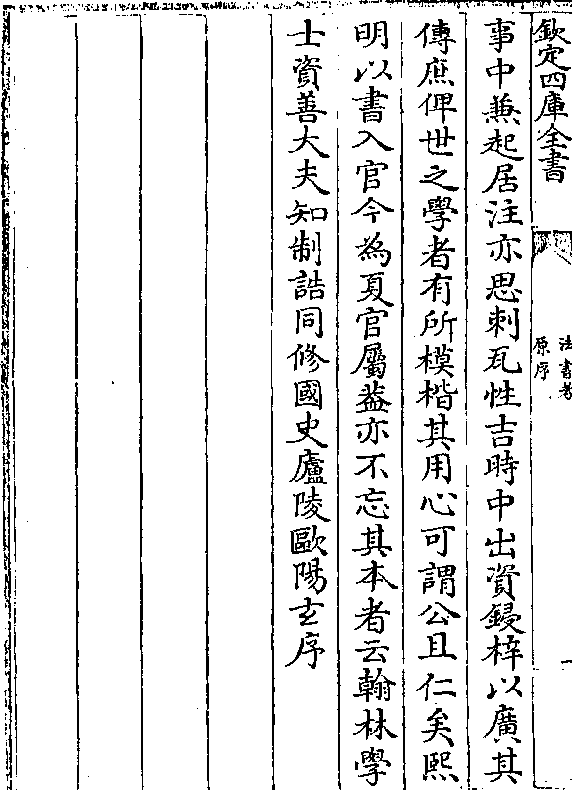 欽定四庫全書
法書考
原序
事中兼起居注亦思刺瓦性吉時中出資鋟梓以廣其
傳庶俾世之學者有所模楷其用心可謂公且仁矣熙
明以書入官今為夏官屬葢亦不忘其本者云翰林學
士資善大夫知制誥同修國史廬陵歐陽玄序